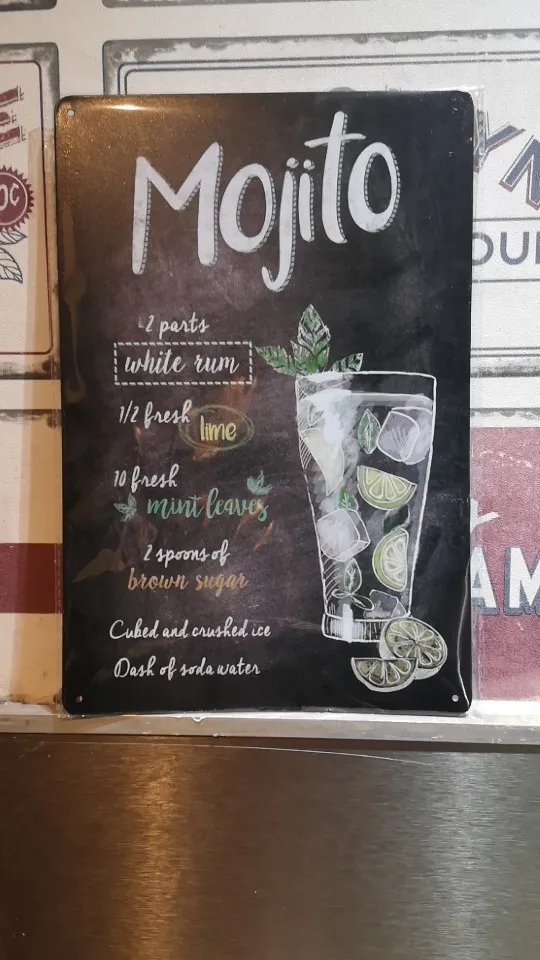 Mojito
2 parts
white rum
1/2 fresh
lime
10 fresh
mint leaves
2 spoons of
brown sugar
Cubed and crushed ice
Dash of soda water